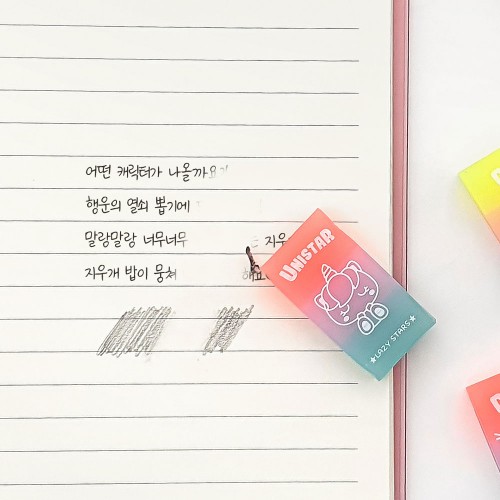 어떤 캐릭터가 나올까요?
행운의 열쇠 뽑기에
말랑말랑 너무너무 지우
지우개 밥이 뭉쳐 해요
UNISTAR
★LAZY STARS★